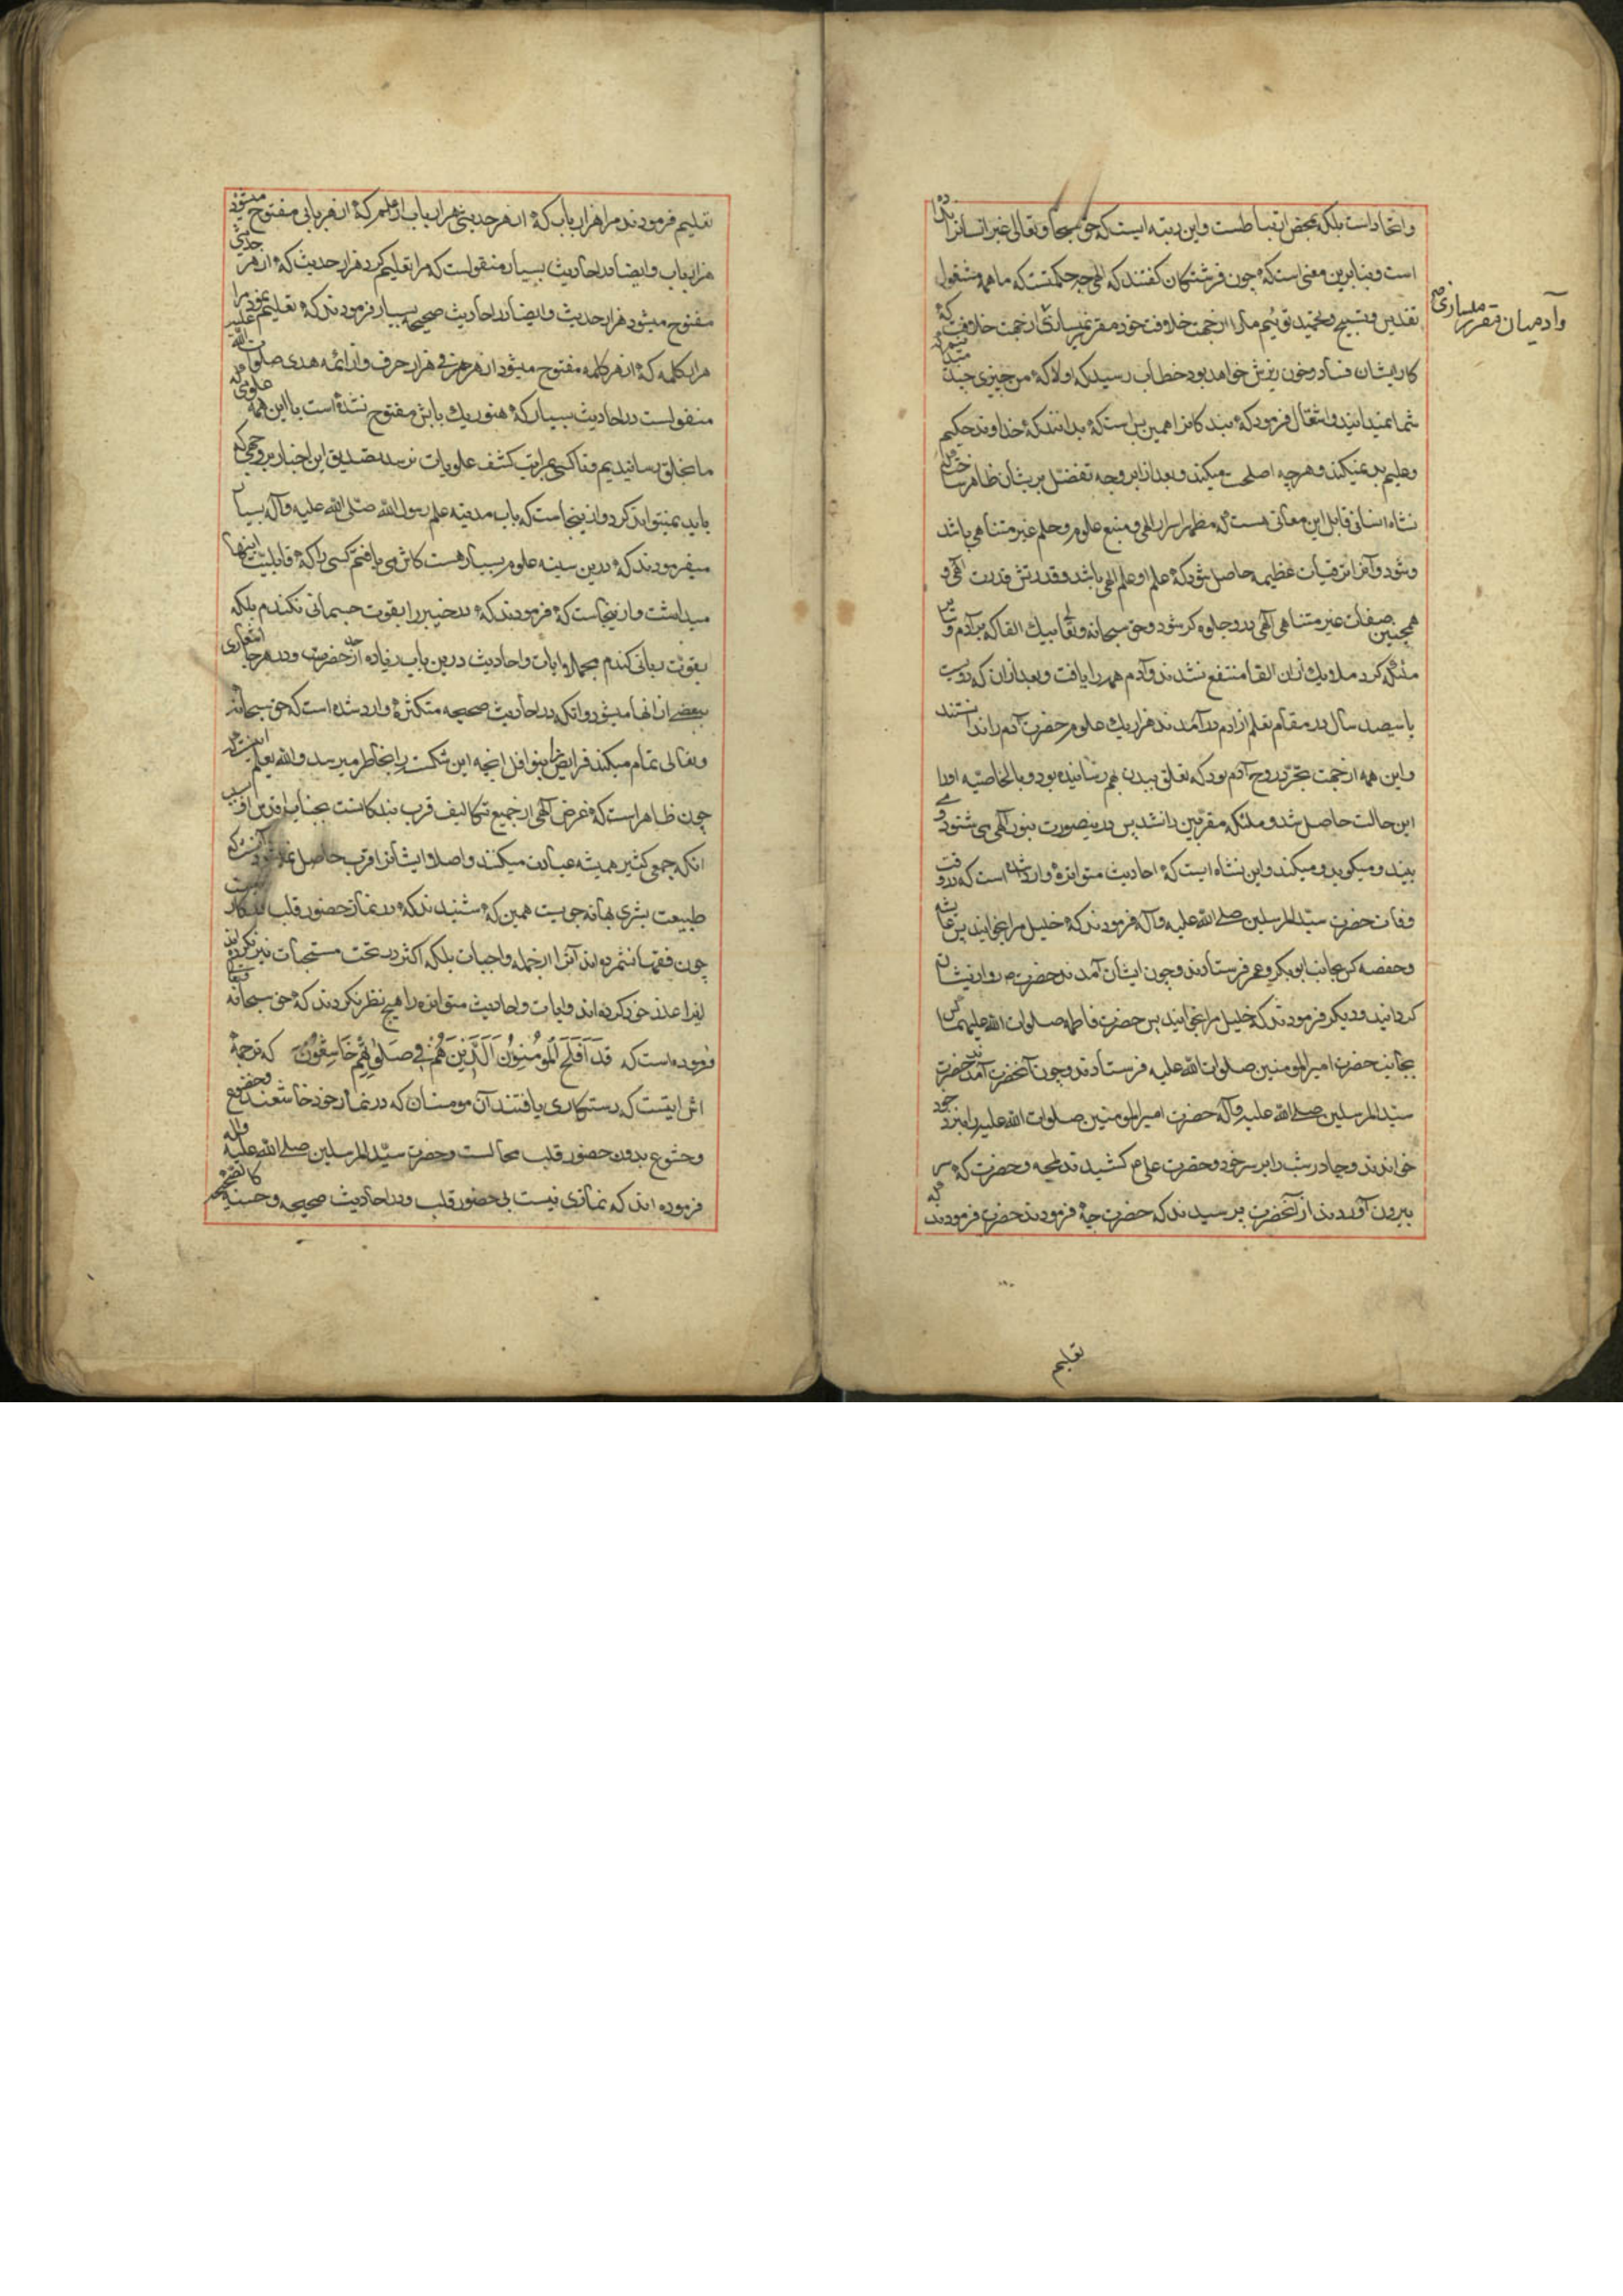 واتحاد است بلکه محض ارتباطست واین رتبه ایست که حق سبحانه وتعالی غیر انسانرا نداده
است وبنابرین معنی است که چون فرشتکان کفتند که الهی چه حکمتست که ما همه مشغول
تقدیس وتسبیح وتحمید توئیم مارا از جهت خلافت خود مقرر نمیسازی از جهت خلافت که
وآدمیان مقرر میسازی
کار ایشان فساد وخون ریزش خواهد بود خطاب رسید که اولا که من چیزی چند میدانم که
شما نمیدانید وحقتعالی فرمود که بندکانرا همین بس است که بدانند که خداوند حکیم
وعلیم بد نمیکند وهرچه اصلحست میکند وبعد ازان بر وجه تفضل بریشان ظاهر ساخت که
نشاه انسانی قابل این معانی هست که مظهر اسرار الهی ومنبع علوم وحلم غیر متناهی باشد
وشود وآنرا ترقیات عظیمه حاصل شود که علم او علم الهی باشد وقدرتش قدرت الهی و
همچنین صفات غیر متناهی الهی در وجلوه کر شود وحق سبحانه وتعالی بیک القا که بر آدم وبر
ملئکه کرد ملایک ازان القا منتفع نشدند وآدم همه را یافت وبعد ازان که دویست
یا سیصد سال در مقام تعلم از آدم در آمدند هزار یک علوم حضرت آدم را ندانستند
واین همه از جهت تجرد روح آدم بود که تعلق ببدن بهم رسانیده بود وبالخاصیه او را
این حالت حاصل شد وملئکه مقربین را نشد پس درینصورت بنور الهی می شنود ومی
بیند ومیکوید ومیکند واین نشاه ایست که احادیث متواتره وارد شده است که در وقت
وفات حضرت سید المرسلین صلی الله علیه وآله فرمودند که خلیل مرا بخوانید پس عایشه
وحفصه کس بجانب ابوبکر وعمر فرستادند وچون ایشان آمدند حضرت رو از ایشان
کردانید ودیکر فرمودند که خلیل مرا بخوانید پس حضرت فاطمه صلوات الله علیها کس
بجانب حضرت امیر المومنین صلوات الله علیه فرستادند وچون آنحضرت آمدند حضرت
سید المرسلین صلی الله علیه وآله حضرت امیر المومنین صلوات الله علیه را بنزد خود
خواندند وچادر شب را بر سر خود وحضرت علی کشیدند تا لمحه وحضرت که سر
بیرون آوردند از آنحضرت پرسیدند که حضرت چه فرمودند حضرت فرمودند که
تعلیم
تعلیم فرمودند مرا هزار باب که از هر هزار باب از علم که از هر بابی مفتوح میشود
هزار باب وایضا در احادیث بسیار منقولست که مرا تعلیم کرد هزار حدیث که از هر حدیثی
مفتوح میشود هزار حدیث وایضا در احادیث صحیحه بسیار فرمودند که تعلیم نمود مرا
هزار کلمه که از هر کلمه مفتوح میشود از هر حرفی هزار حرف واز ائمه هدی صلوات الله علیهم
منقولست در احادیث بسیار که هنوز یک بابش مفتوح نشده است با این همه علومی که
ما بخلق رسانیدیم وتا کسی بمراتب کشف علویات نرسد تصدیق این اخبار بر وجهی که
باید نمیتواند کرد واز ینجاست که باب مدینه علم رسول الله صلی الله علیه وآله بسیار
میفرمودند که درین سینه علوم بسیار هست کاش می یافتم کسی را که قابلیت اینها
میداشت واز ینجاست که فرمودند که در خیبر را بقوت جسمانی نکندم بلکه
بقوت ربانی کندم مجملا آیات واحادیث درین باب زیاده از حد حصرست ودر هر جا اشعاری
ببعضی از انها میشود وانکه در احادیث صحیحه متکثره وارد شده است که حق سبحانه
وتعالی تمام میکند فرایض را بنوافل انچه این شکسته را بخاطر میرسد والله یعلم اینست که
چون ظاهر است که غرض الهی از جمیع تکالیف قرب بندکانست بجناب اقدس او
انکه جمعی کثیر همیشه عبادت میکنند واصلا ایشانرا قرب حاصل نمیشود آنست که
طبیعت بشری بهانه جویست همین که شنیدند که در نماز حضور قلب
چون فقها نشمرده اند آنرا از جمله واجبات بلکه اکثر در تحت مستحبات نیز نکرده اند
لهذا عذر خود کرده اند وآیات واحادیث متواتره را هیچ نظر نکردند که حق سبحانه وتعالی
فرموده است که قَد اَفلَحَ المُومِنُونَ اَلَّذینَ هُم فی صَلوتِهِم خَاشِعُونَ که ترجمه
اش اینست که رستکاری یافتند آن مومنان که در نماز خود خاشعند وخضوع
وخشوع بدون حضور قلب محالست وحضرت سید المرسلین صلی الله علیه وآله
فرموده اند که نمازی نیست بی حضور قلب ودر احادیث صحیحه وحسنه کالصحیحه